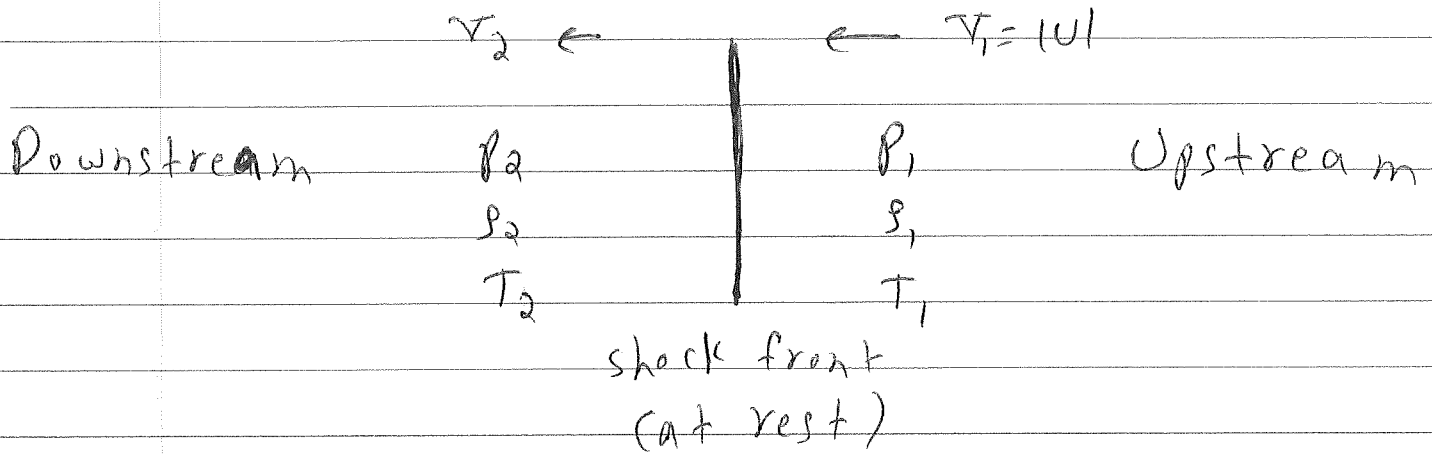 V₂ ← ← V₁ = |U|
Downstream P₂ P₁ Upstream
ρ₂ ρ₁
T₂ T₁
shock front
(at rest)